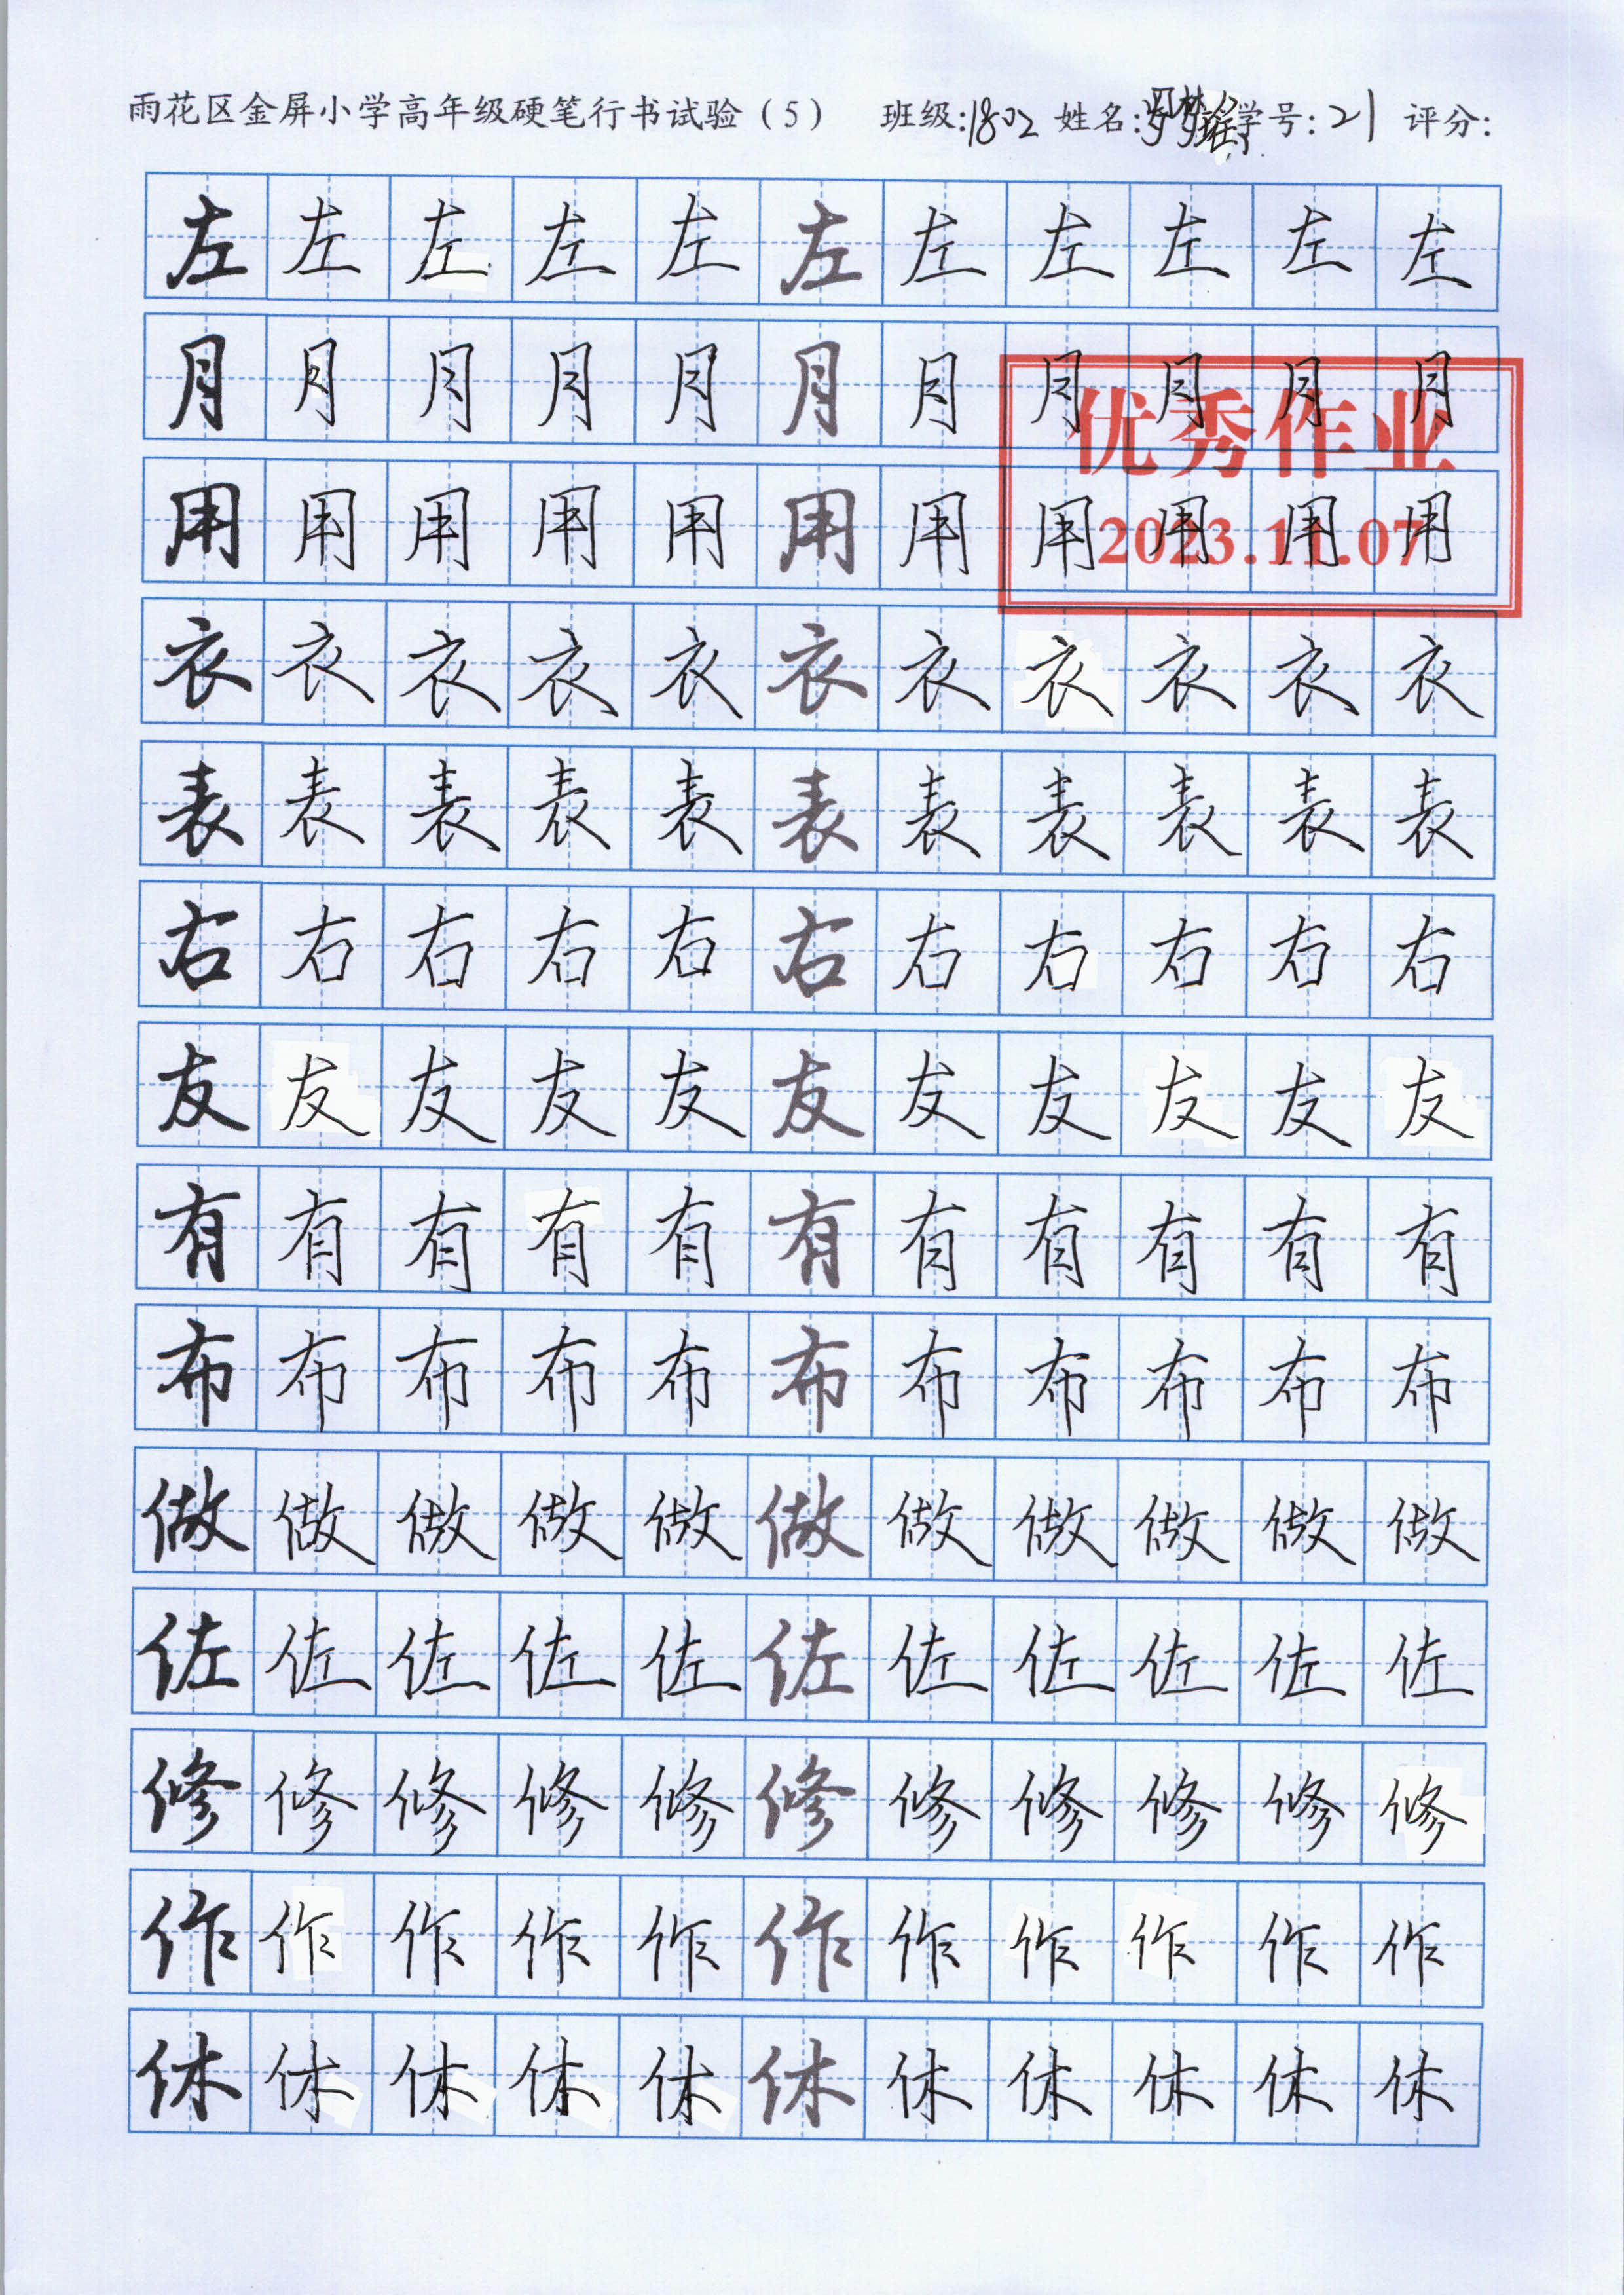 雨花区金屏小学高年级硬笔行书试验（5） 班级:1802 姓名:罗梦瑶 学号:21 评分:
左左左左左左左左左左左
月月月月月月月月月月月
优秀作业
用用用用用用用用用用用
2023.11.07
衣衣衣衣衣衣衣衣衣衣衣
表表表表表表表表表表表
右右右右右右右右右右右
友友友友友友友友友友友
有有有有有有有有有有有
布布布布布布布布布布布
做做做做做做做做做做做
佐佐佐佐佐佐佐佐佐佐佐
修修修修修修修修修修修
作作作作作作作作作作作
休休休休休休休休休休休